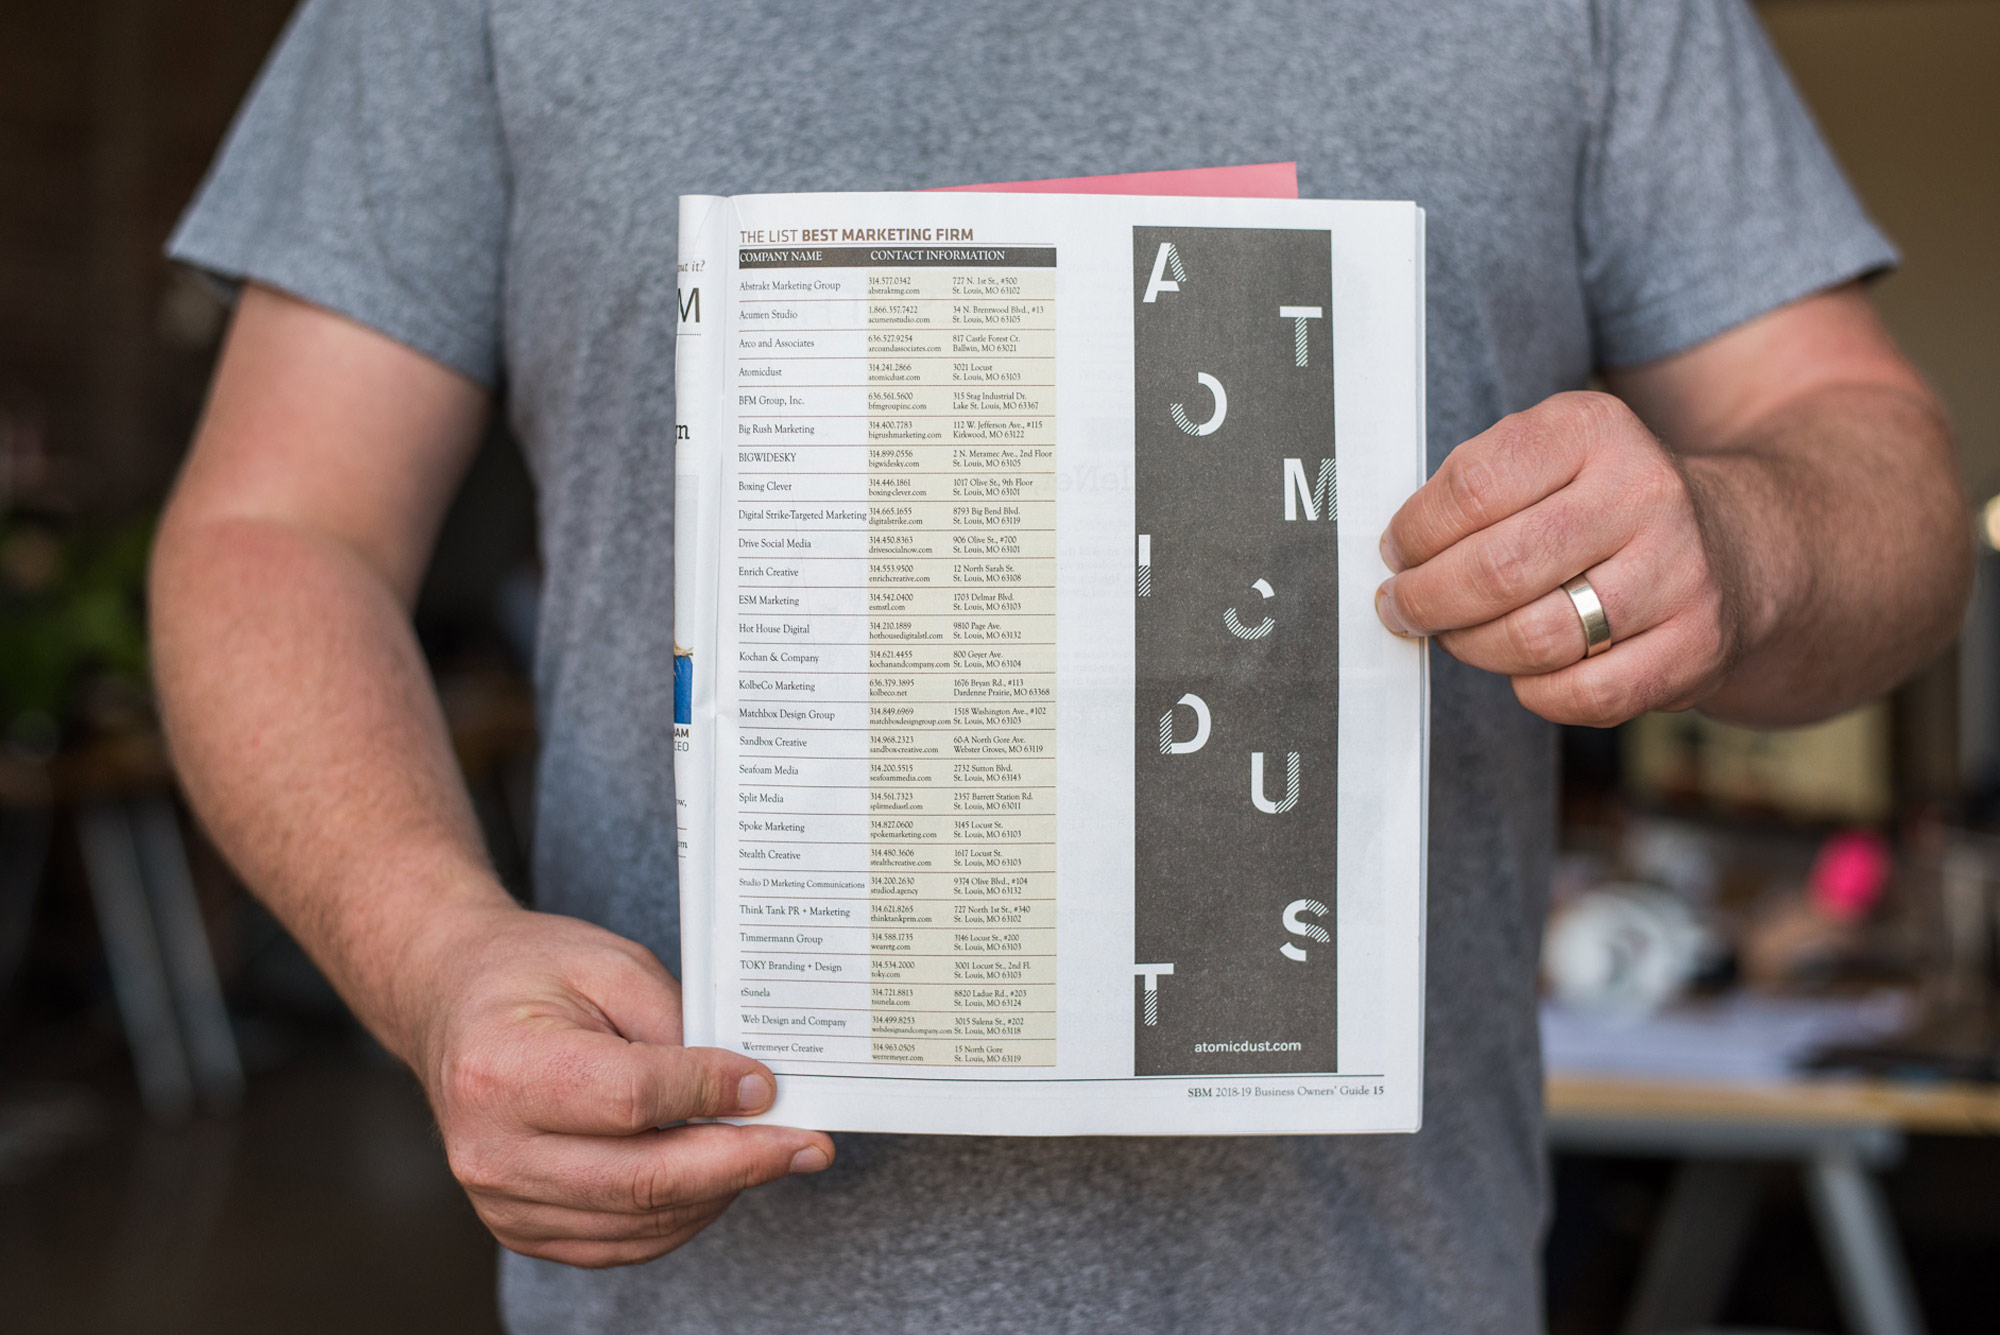 out it?
M
AM
CEO
THE LIST BEST MARKETING FIRM
COMPANY NAME CONTACT INFORMATION
Abstrakt Marketing Group 314.577.0342 727 N. 1st St., #500
abstraktmg.com St. Louis, MO 63102
Acumen Studio 1.866.357.7422 34 N. Brentwood Blvd., #13
acumenstudio.com St. Louis, MO 63105
Arco and Associates 636.527.9254 817 Castle Forest Ct.
arcoandassociates.com Ballwin, MO 63021
Atomicdust 314.241.2866 3021 Locust
atomicdust.com St. Louis, MO 63103
BFM Group, Inc. 636.561.5600 315 Stag Industrial Dr.
bfmgroupinc.com Lake St. Louis, MO 63367
Big Rush Marketing 314.400.7783 112 W. Jefferson Ave., #115
bigrushmarketing.com Kirkwood, MO 63122
BIGWIDESKY 314.899.0556 2 N. Meramec Ave., 2nd Floor
bigwidesky.com St. Louis, MO 63105
Boxing Clever 314.446.1861 1017 Olive St., 9th Floor
boxing-clever.com St. Louis, MO 63101
Digital Strike-Targeted Marketing 314.665.1655 8793 Big Bend Blvd.
digitalstrike.com St. Louis, MO 63119
Drive Social Media 314.450.8363 906 Olive St., #700
drivesocialnow.com St. Louis, MO 63101
Enrich Creative 314.553.9500 12 North Sarah St.
enrichcreative.com St. Louis, MO 63108
ESM Marketing 314.542.0400 1703 Delmar Blvd.
esmstl.com St. Louis, MO 63103
Hot House Digital 314.210.1889 9810 Page Ave.
hothousedigitalstl.com St. Louis, MO 63132
Kochan & Company 314.621.4455 800 Geyer Ave.
kochanandcompany.com St. Louis, MO 63104
KolbeCo Marketing 636.379.3895 1676 Bryan Rd., #113
kolbeco.net Dardenne Prairie, MO 63368
Matchbox Design Group 314.849.6969 1518 Washington Ave., #102
matchboxdesigngroup.com St. Louis, MO 63103
Sandbox Creative 314.968.2323 60-A North Gore Ave.
sandbox-creative.com Webster Groves, MO 63119
Seafoam Media 314.200.5515 2732 Sutton Blvd.
seafoammedia.com St. Louis, MO 63143
Split Media 314.561.7323 2357 Barrett Station Rd.
splitmediastl.com St. Louis, MO 63011
Spoke Marketing 314.827.0600 3145 Locust St.
spokemarketing.com St. Louis, MO 63103
Stealth Creative 314.480.3606 1617 Locust St.
stealthcreative.com St. Louis, MO 63103
Studio D Marketing Communications 314.200.2630 9374 Olive Blvd., #104
studiod.agency St. Louis, MO 63132
Think Tank PR + Marketing 314.621.8265 727 North 1st St., #340
thinktankprm.com St. Louis, MO 63102
Timmermann Group 314.588.1735 3146 Locust St., #200
wearetg.com St. Louis, MO 63103
TOKY Branding + Design 314.534.2000 3001 Locust St., 2nd Fl.
toky.com St. Louis, MO 63103
tSunela 314.721.8813 8820 Ladue Rd., #203
tsunela.com St. Louis, MO 63124
Web Design and Company 314.499.8253 3015 Salena St., #202
webdesignandcompany.com St. Louis, MO 63118
Werremeyer Creative 314.963.0505 15 North Gore
werremeyer.com St. Louis, MO 63119
A
T
O
M
I
C
D
U
S
T
atomicdust.com
SBM 2018-19 Business Owners' Guide 15